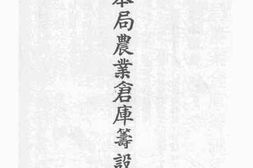 本局農業倉庫籌設